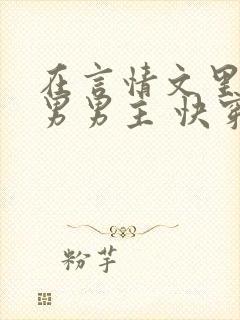 在言情文里
男男主 快穿
粉芋